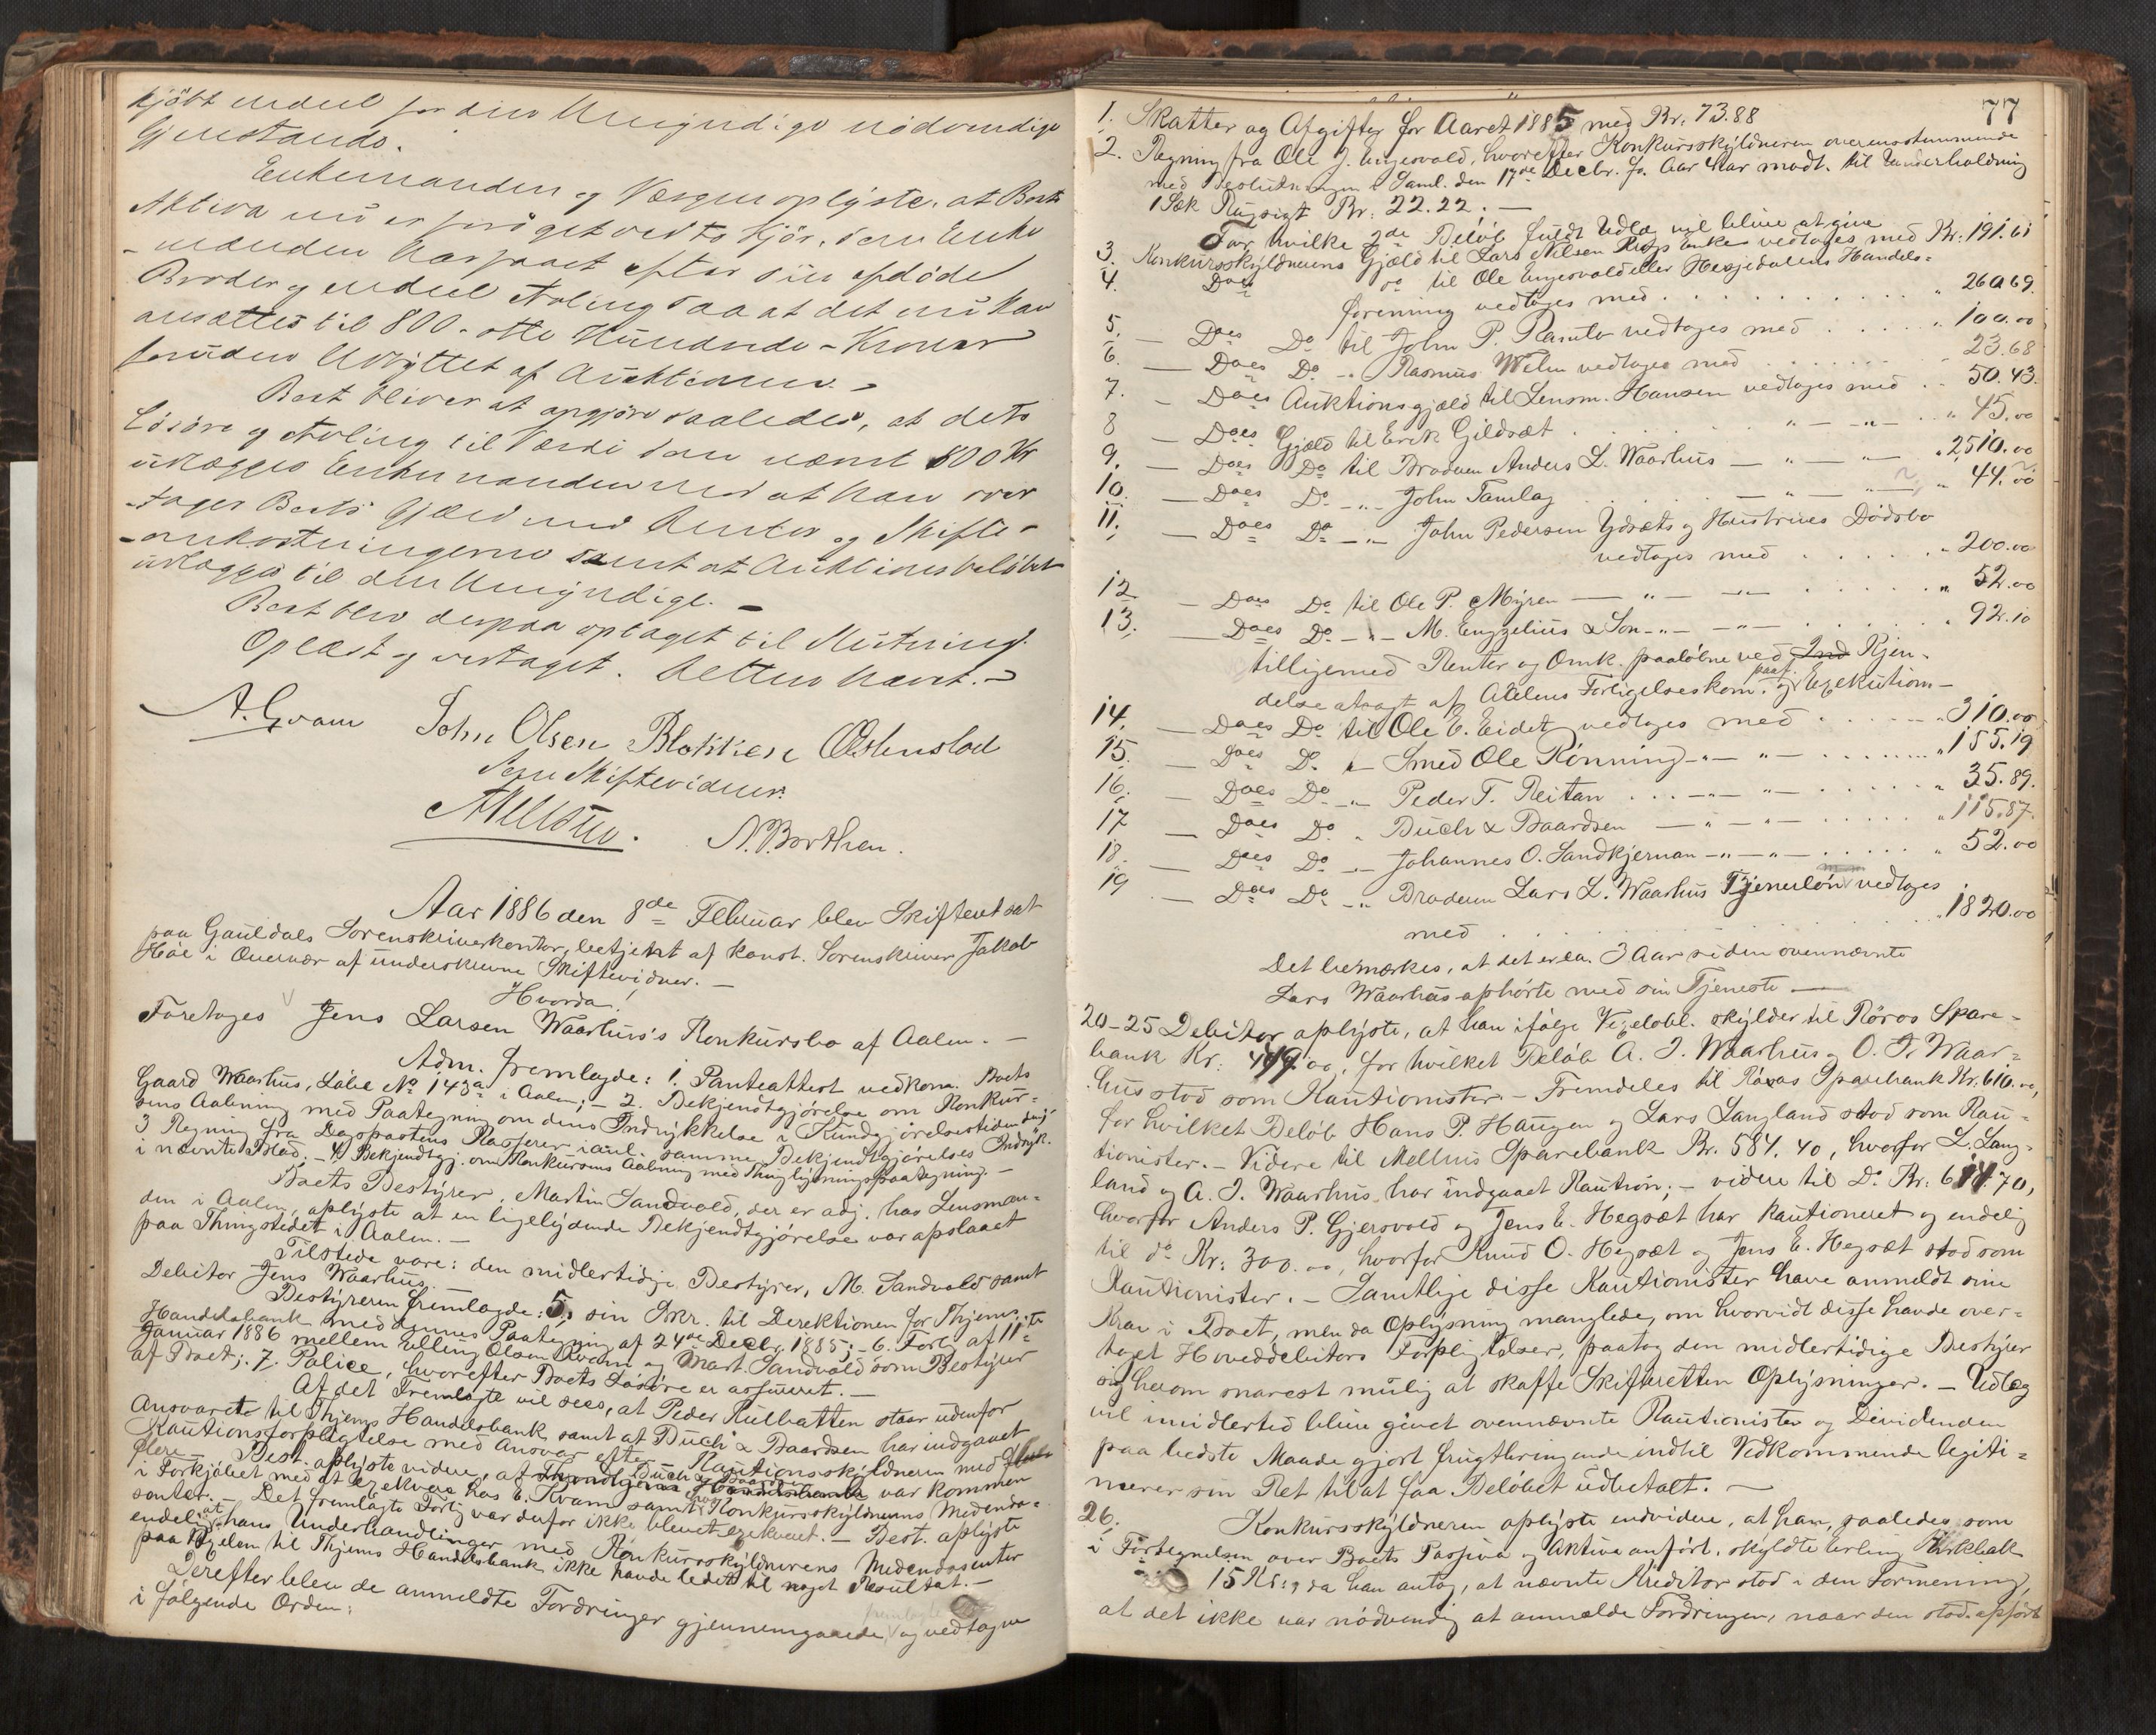 kjöbt endeel for den Umyndige nödvendige
Gjenstande.
Enkemanden og Værgen oplyste, at Boets
Aktiva nu er foröget ved to Kjör, som Enke
-manden har faaet efter sin afdöde
Broder og endeel Avling saa at det nu kan
ansættes til 800 - otte Hundrede - Kroner
foruden Udbyttet af Auktionen. -
Boet bliver at opgjöre saaledes, at dets
Lösöre og Avling til Værdi som nævnt 800 Kr
udlægges Enkemanden mod at han over
-tager Boets Gjæld med Renter og Skifte-
-omkostningerne samt at Auktionsbelöbet
udlægges til den Umyndige. -
Boet blev derpaa optaget til Slutning.
Oplæst og vedtaget. Retten hævet. -
A. Gvam John Olsen Blokken Östenstad
Som Skiftevidner:
N. Borthen.
Aar 1886 den 8de Februar blev Skifteret sat
paa Gauldals Sorenskriverkontor, betjent af konst. Sorenskriver Jakob
Höe i Overvær af underskrevne Skiftevidner. -
Hvorda!
Foretoges Jens Larsen Waarhus's Konkursbo af Aalen. -
Adm. fremlagde: 1. Panteattest vedkom. Boets
Gaard Waarhus, Löbe No 143a i Aalen; - 2. Bekjendtgjörelse om Konkur-
sens Aabning med Paategning om dens Indrykkelse i Kundgjörelsestidende;
3 Regning fra Dagspostens Kasserer i anl. samme Bekjendtgjörelses Indryk.
i nævnte Blad; - 4. Bekjendtgj. om Konkursens Aabning med Thinglysningspaategning. -
Boets Bestyrer, Martin Sandvold, der er adj. hos Lensman-
den i Aalen, oplyste at en ligelydende Bekjendtgjörelse var opslaaet
paa Thingstedet i Aalen. -
Tilstede vare: den midlertidige Bestyrer, M. Sandvold samt
Debitor Jens Waarhus.
Bestyreren fremlagde: 5. sin Skr. til Direktionen for Thjems
Handelsbank med dennes Paategning af 24de Decbr. 1885; - 6. Forlig af 11te
Januar 1886 mellem Elling Olsen Kvam og Mart. Sandvold som Bestyrer
af Boet; 7. Police, hvorefter Boets Lösöre er assureret. -
Af det Fremlagte vil sees, at Peder Kulbatten staar udenfor
Ansvaret til Thjems Handelsbank samt at Buch & Baardsen har indgaaet
Kautionsforpligtelse med Ansvar efter Kautionsskyldneren med
flere - Best. oplyste videre, at Buch & Baardsen var kommen
i Forkjöbet med at exekvere hos E. Kvam samt hos Konkursskyldnerens Medenda-
senter. - Det fremlagte Forlig var derfor ikke blevet exekveret. - Best. oplyste
endelig, at hans Underhandlinger med Konkursskyldnerens Medendosenter
paa Vexelen til Thjems Handelsbank ikke havde ledet til noget Resultat. -
Derefter blev de anmeldte Fordringer gjennemgaaede fremlagte og vedtagne
i fölgende Orden:
77
1. Skatter og Afgifter for Aaret 1885 med Kr. 73.88
2. Regning fra Ole J. Engesvold, hvorefter Konkursskyldneren overensstemmende
med Beslutningen i Saml. den 17de Decbr. f. Aar har modt. til Underholdning
1 Sæk Rugsigt Kr. 22.22. -
For hvilke 2de Belöb fuldt Udlæg vil blive at give
3. Konkursskyldnerens Gjæld til Lars Nilsen Enke vedtages med Kr. 191.61
4. Does Do til Ole Engesvold eller Hesjedalens Handels-
forening vedtages med . . . . " 260.69.
5. - Does Do til John P. Ramlo vedtoges med . . . . " 100.00
6. - Does Do -"- Rasmus Welm vedtoges med . . . . 23.68
7. - Does Auktionsgjæld til Lensm. Hansen vedtoges med . . 50.43.
8 - Does Gjæld til Erik Gildsæt . . . . " - " - " 45.00
9. - Does Do til Broderen Anders L. Waarhus - " - " - " 2510.00
10. - Does Do -"- John Tamlag . . . . - " - " - " 44.00
11. - Does Do -"- John Pedersen Ydsæts og Hustrues Dödsbo
vedtoges med . . . . " 200.00
12. - Does Do til Ole P. Myren - " - " - . . . . " 52.00
13. - Does Do -"- M. Engzelius & Son -"- -"- . . . . " 92.10
tilligemed Renter og Omk. paalöbne ved Ind Kjen-
delse afsagt af Aalens Forligelseskom. og paaf. Exekution -
14. - Does Do til Ole E. Eidet vedtoges med . . . . " 310.00
15. - Does Do " - Smed Ole Rönning -"- -"- . . . . " 155.19
16. - Does Do -"- Peder T. Reitan . . . -"- -"- . . . . " 35.89.
17 - Does Do " Buch & Baardsen - " - " - . . . . " 115.87.
18. - Does Do -"- Johannes O. Sandkjernan -"- -"- . . . . " 52.00
19 - Does Do -"- Broderen Lars L. Waarhus Tjenerlön vedtoges
med . . . . " 1820.00
Det bemærkes, at det er ca. 3 Aar siden ovennævnte
Lars Waarhus ophörte med sin Tjeneste -
20-25 Debitor oplyste, at han ifölge Vexelobl. skylder til Röros Spare-
bank Kr. 499.00, for hvilket Belöb A. J. Waarhus og O. J. Waar-
hus stod som Kautionister. - Fremdeles til Röros Sparebank Kr. 610.00,
for hvilket Belöb Hans P. Haugen og Lars Langland stod som Kau-
tionister. - Videre til Melhus Sparebank Kr. 584.40, hvorfor L. Lang-
land og A. J. Waarhus har indgaaet Kaution; - videre til Do Kr. 614.70,
hvorfor Anders P. Gjersvold og Jens E. Hegsæt har kautioneret og endelig
til do Kr. 300.00, hvorfor Knud O. Hegsæt og Jens E. Hegsæt stod som
Kautionister. - Samtlige disse Kautionister have anmeldt sine
Krav i Boet, men da Oplysning manglede, om hvorvidt disse havde over-
taget Hoveddebitors Forpligtelser, paatog den midlertidige Bestyrer
sig herom snarest mulig at skaffe Skifteretten Oplysninger. - Udlæg
vil imidlertid blive givet ovennævnte Kautionister og Dividenden
paa bedste Maade gjort frugtbringende indtil Vedkommende legiti-
merer sin Ret til at faa Belöbet udbetalt. -
26. Konkursskyldneren oplyste endvidere, at han, saaledes som
i Fortegnelsen over Boets Passiva og Aktiva anfört, skyldte Erling Kirkbak
15 Kr., da han antog, at nævnte Kreditor stod i den Formening,
at det ikke var nödvendig at anmelde Fordringen, naar den stod opfört